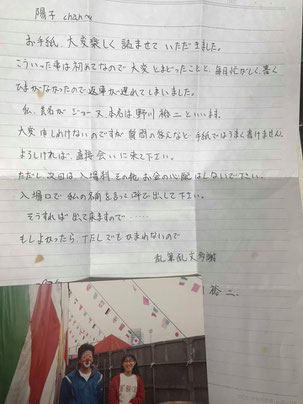 陽子 chanへ
お手紙、大変楽しく読ませていただきました。
こういった事は初めてなので大変とまどったことと、毎日忙しく、書く
ひまがなかったので返事が遅れてしまいました。
私、芸名がジョース、本名は、野川裕二といいます。
大変申しわけないのですが質問の答えなど、手紙ではうまく書けません。
よろしければ、直接会いに来て下さい。
ただし次回は、入場料その他お金の心配はしないで下さい。
入場口で私の名前を言って呼び出して下さい。
そうすれば出て来ますので……
もしよかったら、TELでもかまわないので
乱筆乱文多謝
裕二